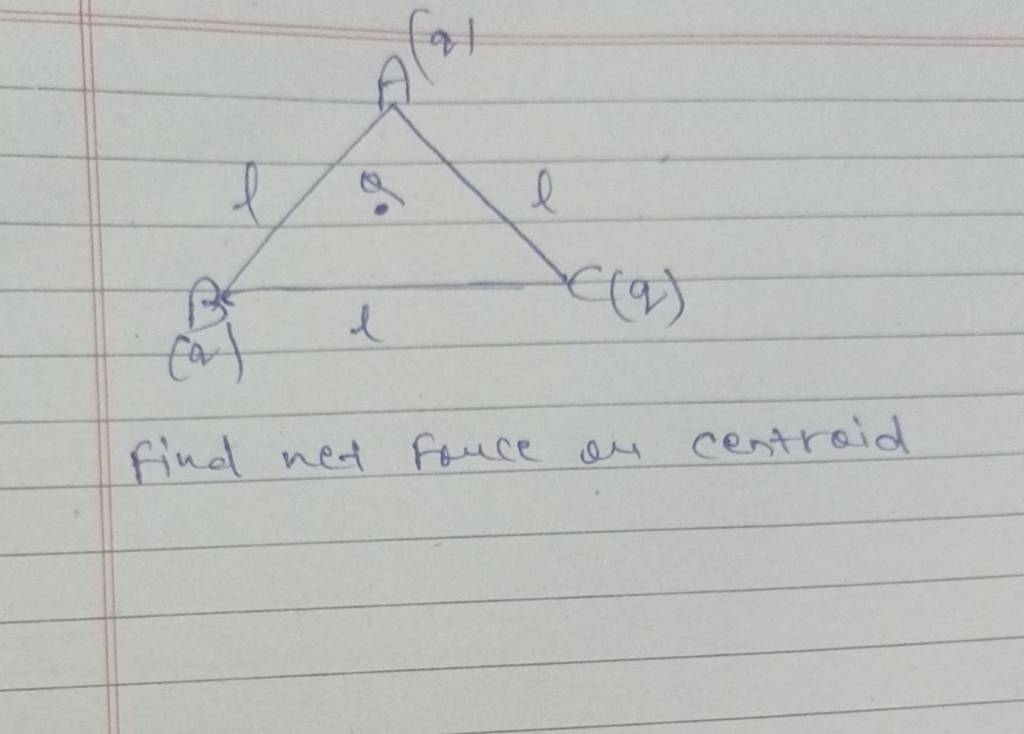 A (q)
l Q l
B C (q)
(q) l
Find net Force on centroid